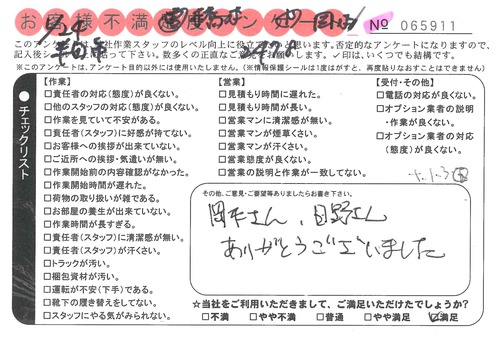 お客様不満足度アンケート
№ 065911
このアンケートは、当社作業スタッフのレベル向上に役立てたいと思います。否定的なアンケートになりますので、
記入後シールを貼って下さい。数多くの正直なご意見をお願いします。✓印は、いくつでも結構です。
※このアンケートは、アンケート目的以外には使用いたしません。(※情報保護シールは1度はがすと、再度貼りなおすことはできません)
チェックリスト
【作業】
□責任者の対応(態度)が良くない。
□他のスタッフの対応(態度)が良くない。
□作業を見ていて不安がある。
□責任者(スタッフ)に好感が持てない。
□お客様への挨拶が出来ていない。
□ご近所への挨拶・気遣いが無い。
□作業開始前の内容確認がなかった。
□作業開始時間が遅れた。
□荷物の取り扱いが雑である。
□お部屋の養生が出来ていない。
□作業時間が長すぎる。
□責任者(スタッフ)に清潔感が無い。
□責任者(スタッフ)が汗くさい。
□トラックが汚い。
□梱包資材が汚い。
□運転が不安(下手)である。
□靴下の履き替えをしてない。
□スタッフにやる気がみられない。
【営業】
□見積もり時間に遅れた。
□見積もり時間が長い。
□営業マンに清潔感が無い。
□営業マンが煙草くさい。
□営業マンが汗くさい。
□営業態度が良くない。
□営業の説明と作業が一致してない。
【受付・その他】
□電話の対応が良くない。
□オプション業者の説明
・作業が良くない。
□オプション業者の対応
(態度)が良くない。
その他、ご意見・ご要望等ありましたらお書き下さい。
岡本さん、日野さん
ありがとうございました
☆当社をご利用いただきまして、ご満足いただけたでしょうか?
□不満 □やや不満 □普通 □やや満足 ☑満足